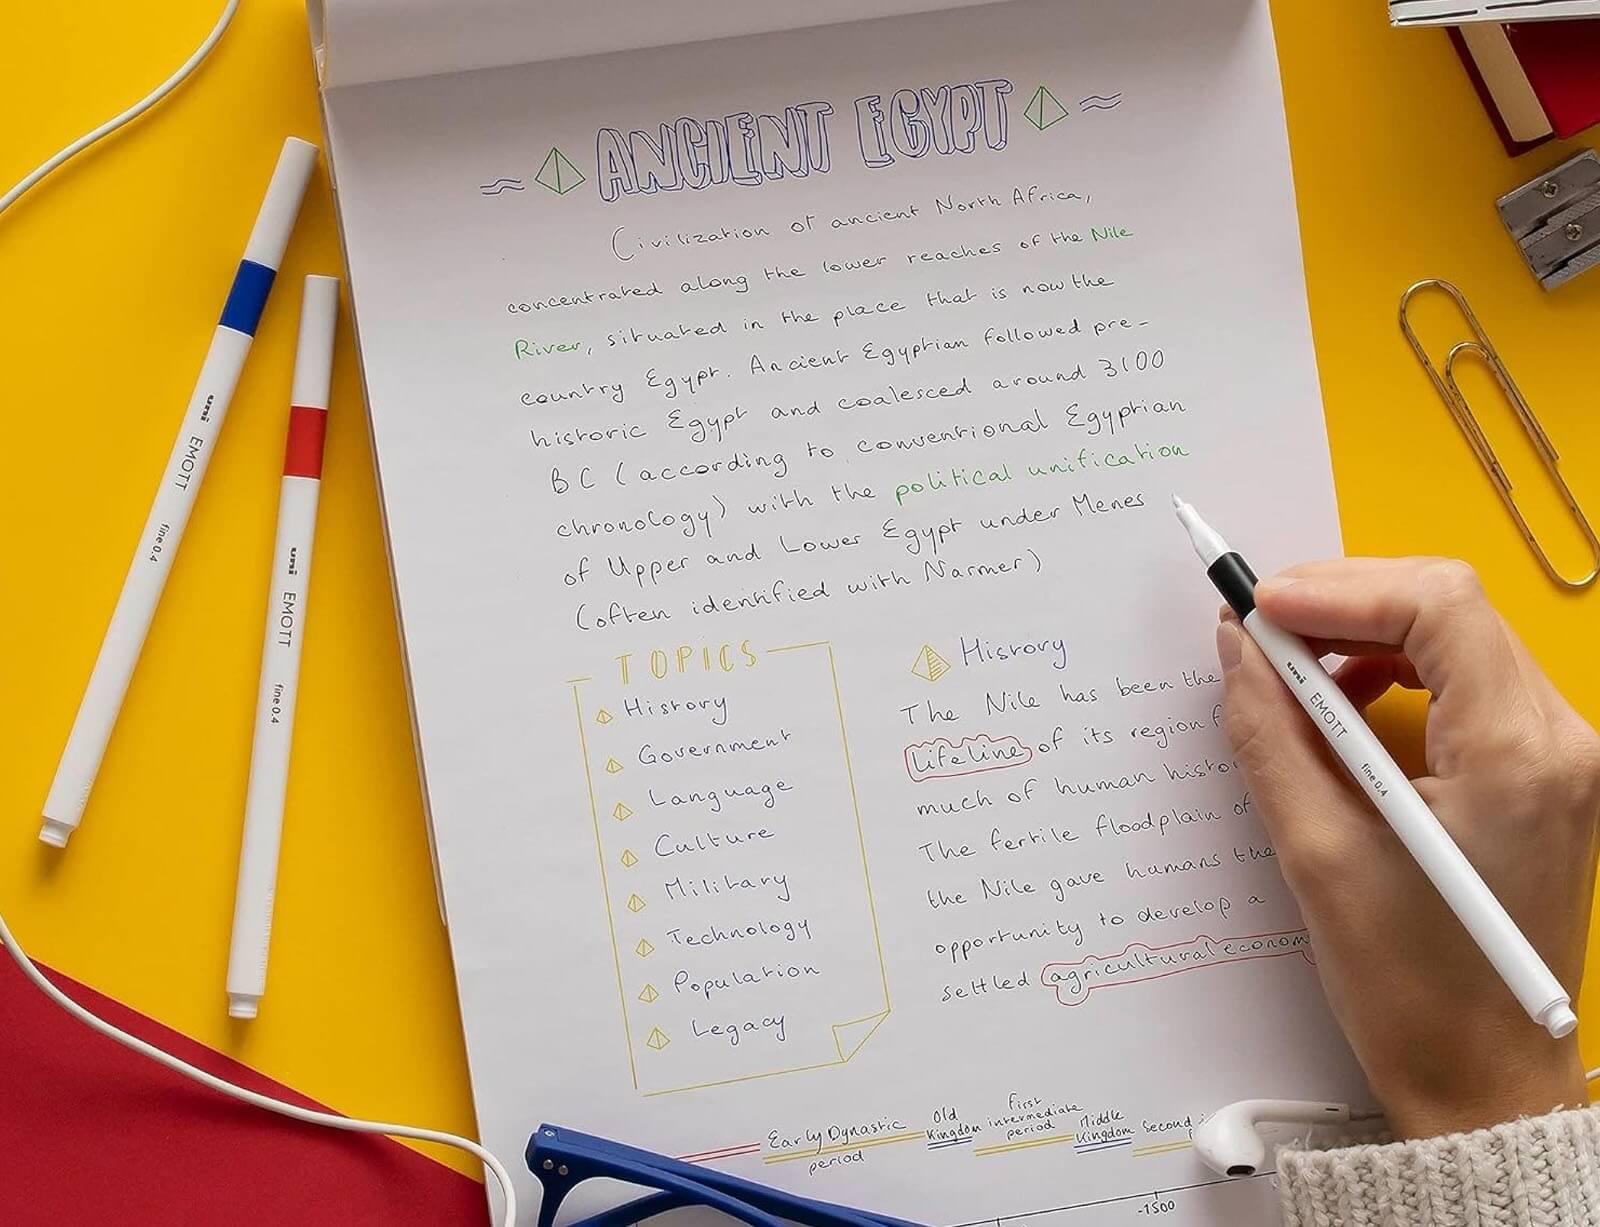 ANCIENT EGYPT
Civilization of ancient North Africa,
concentrated along the lower reaches of the Nile
River, situated in the place that is now the
country Egypt. Ancient Egyptian followed pre-
historic Egypt and coalesced around 3100
BC (according to conventional Egyptian
chronology) with the political unification
of Upper and Lower Egypt under Menes
(often identified with Narmer)
TOPICS
History
Government
Language
Culture
Military
Technology
Population
Legacy
History
The Nile has been the
lifeline of its region f
much of human histo
The fertile floodplain of
the Nile gave humans the
opportunity to develop a
settled agricultural econom
Early Dynastic
period
Old
Kingdom
First
intermediate
period
Middle
Kingdom
Second
-1500
uni EMOTT fine 0.4
uni EMOTT fine 0.4
uni EMOTT fine 0.4